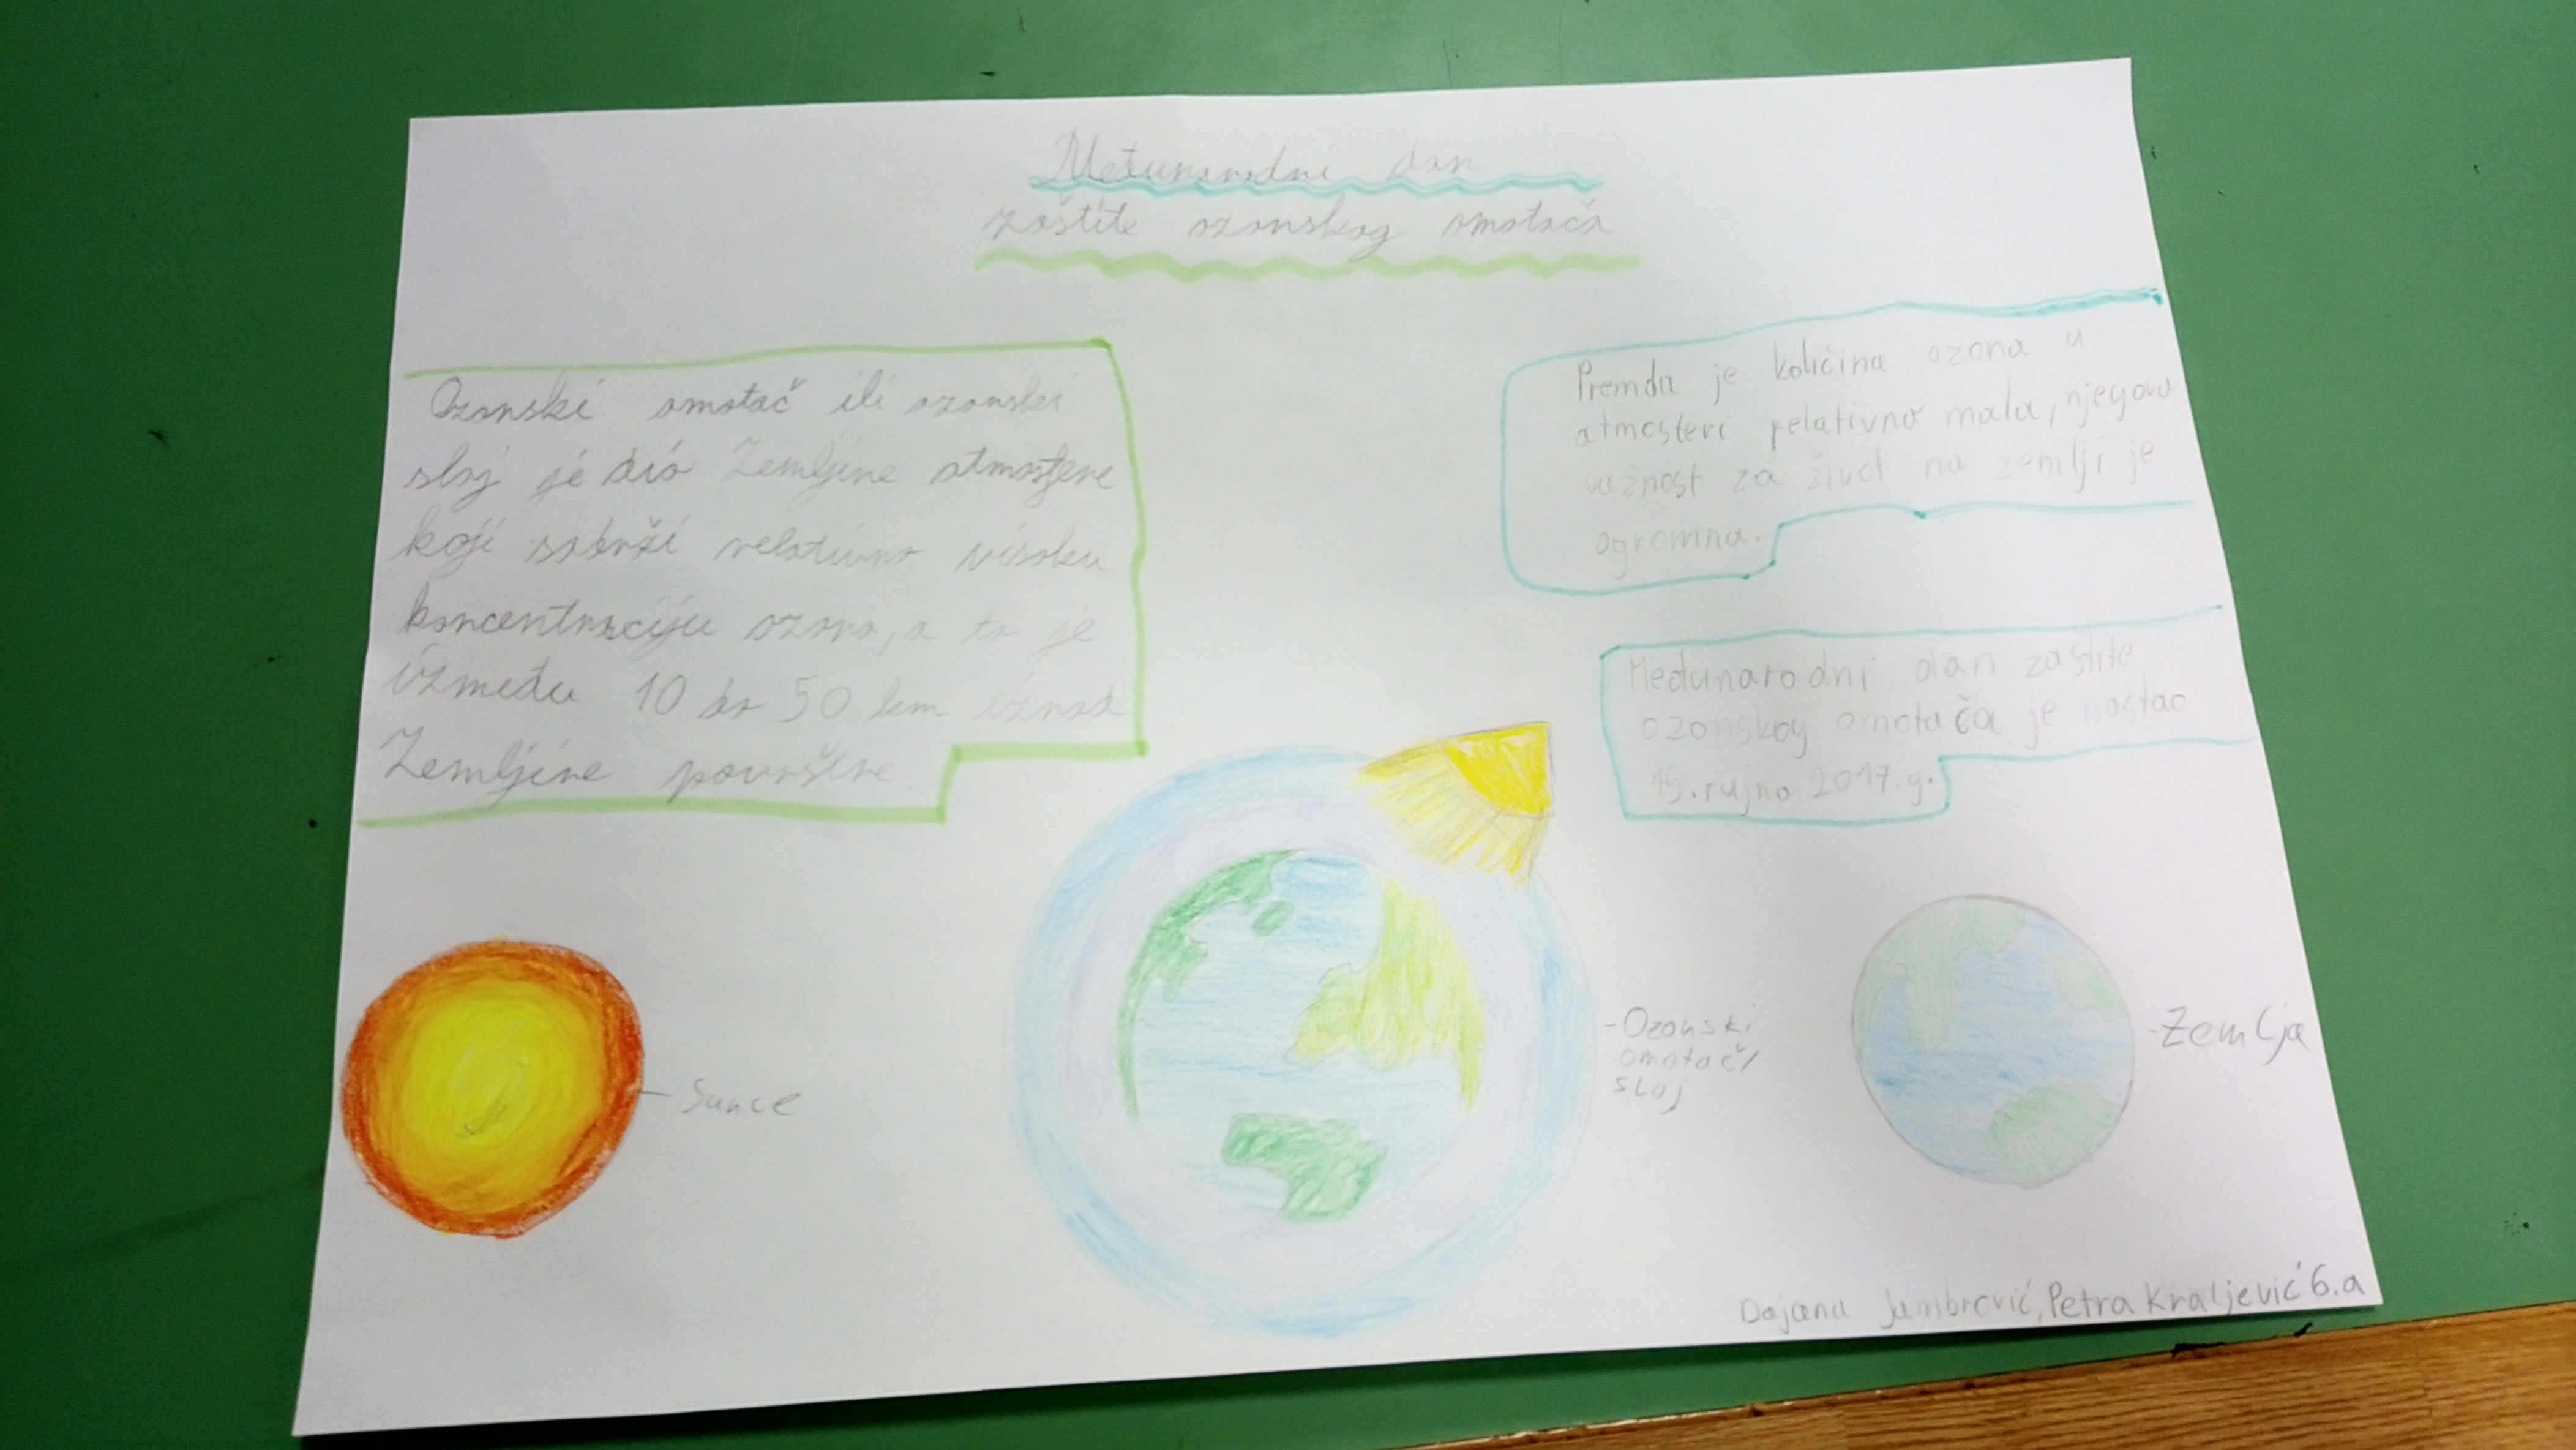 Međunarodni dan
zaštite ozonskog omotača
Ozonski omotač ili ozonski
sloj je dio Zemljine atmosfere
koji sadrži relativno visoku
koncentraciju ozona, a to je
između 10 do 50 km iznad
Zemljine površine
Premda je količina ozona u
atmosferi relativno mala, njegova
važnost za život na zemlji je
ogromna.
Međunarodni dan zaštite
ozonskog omotača je nastao
19. rujna 2017.g.
- Sunce
-Ozonski
omotač/
sloj
-Zemlja
Dajana Jambrović, Petra Kraljević 6.a